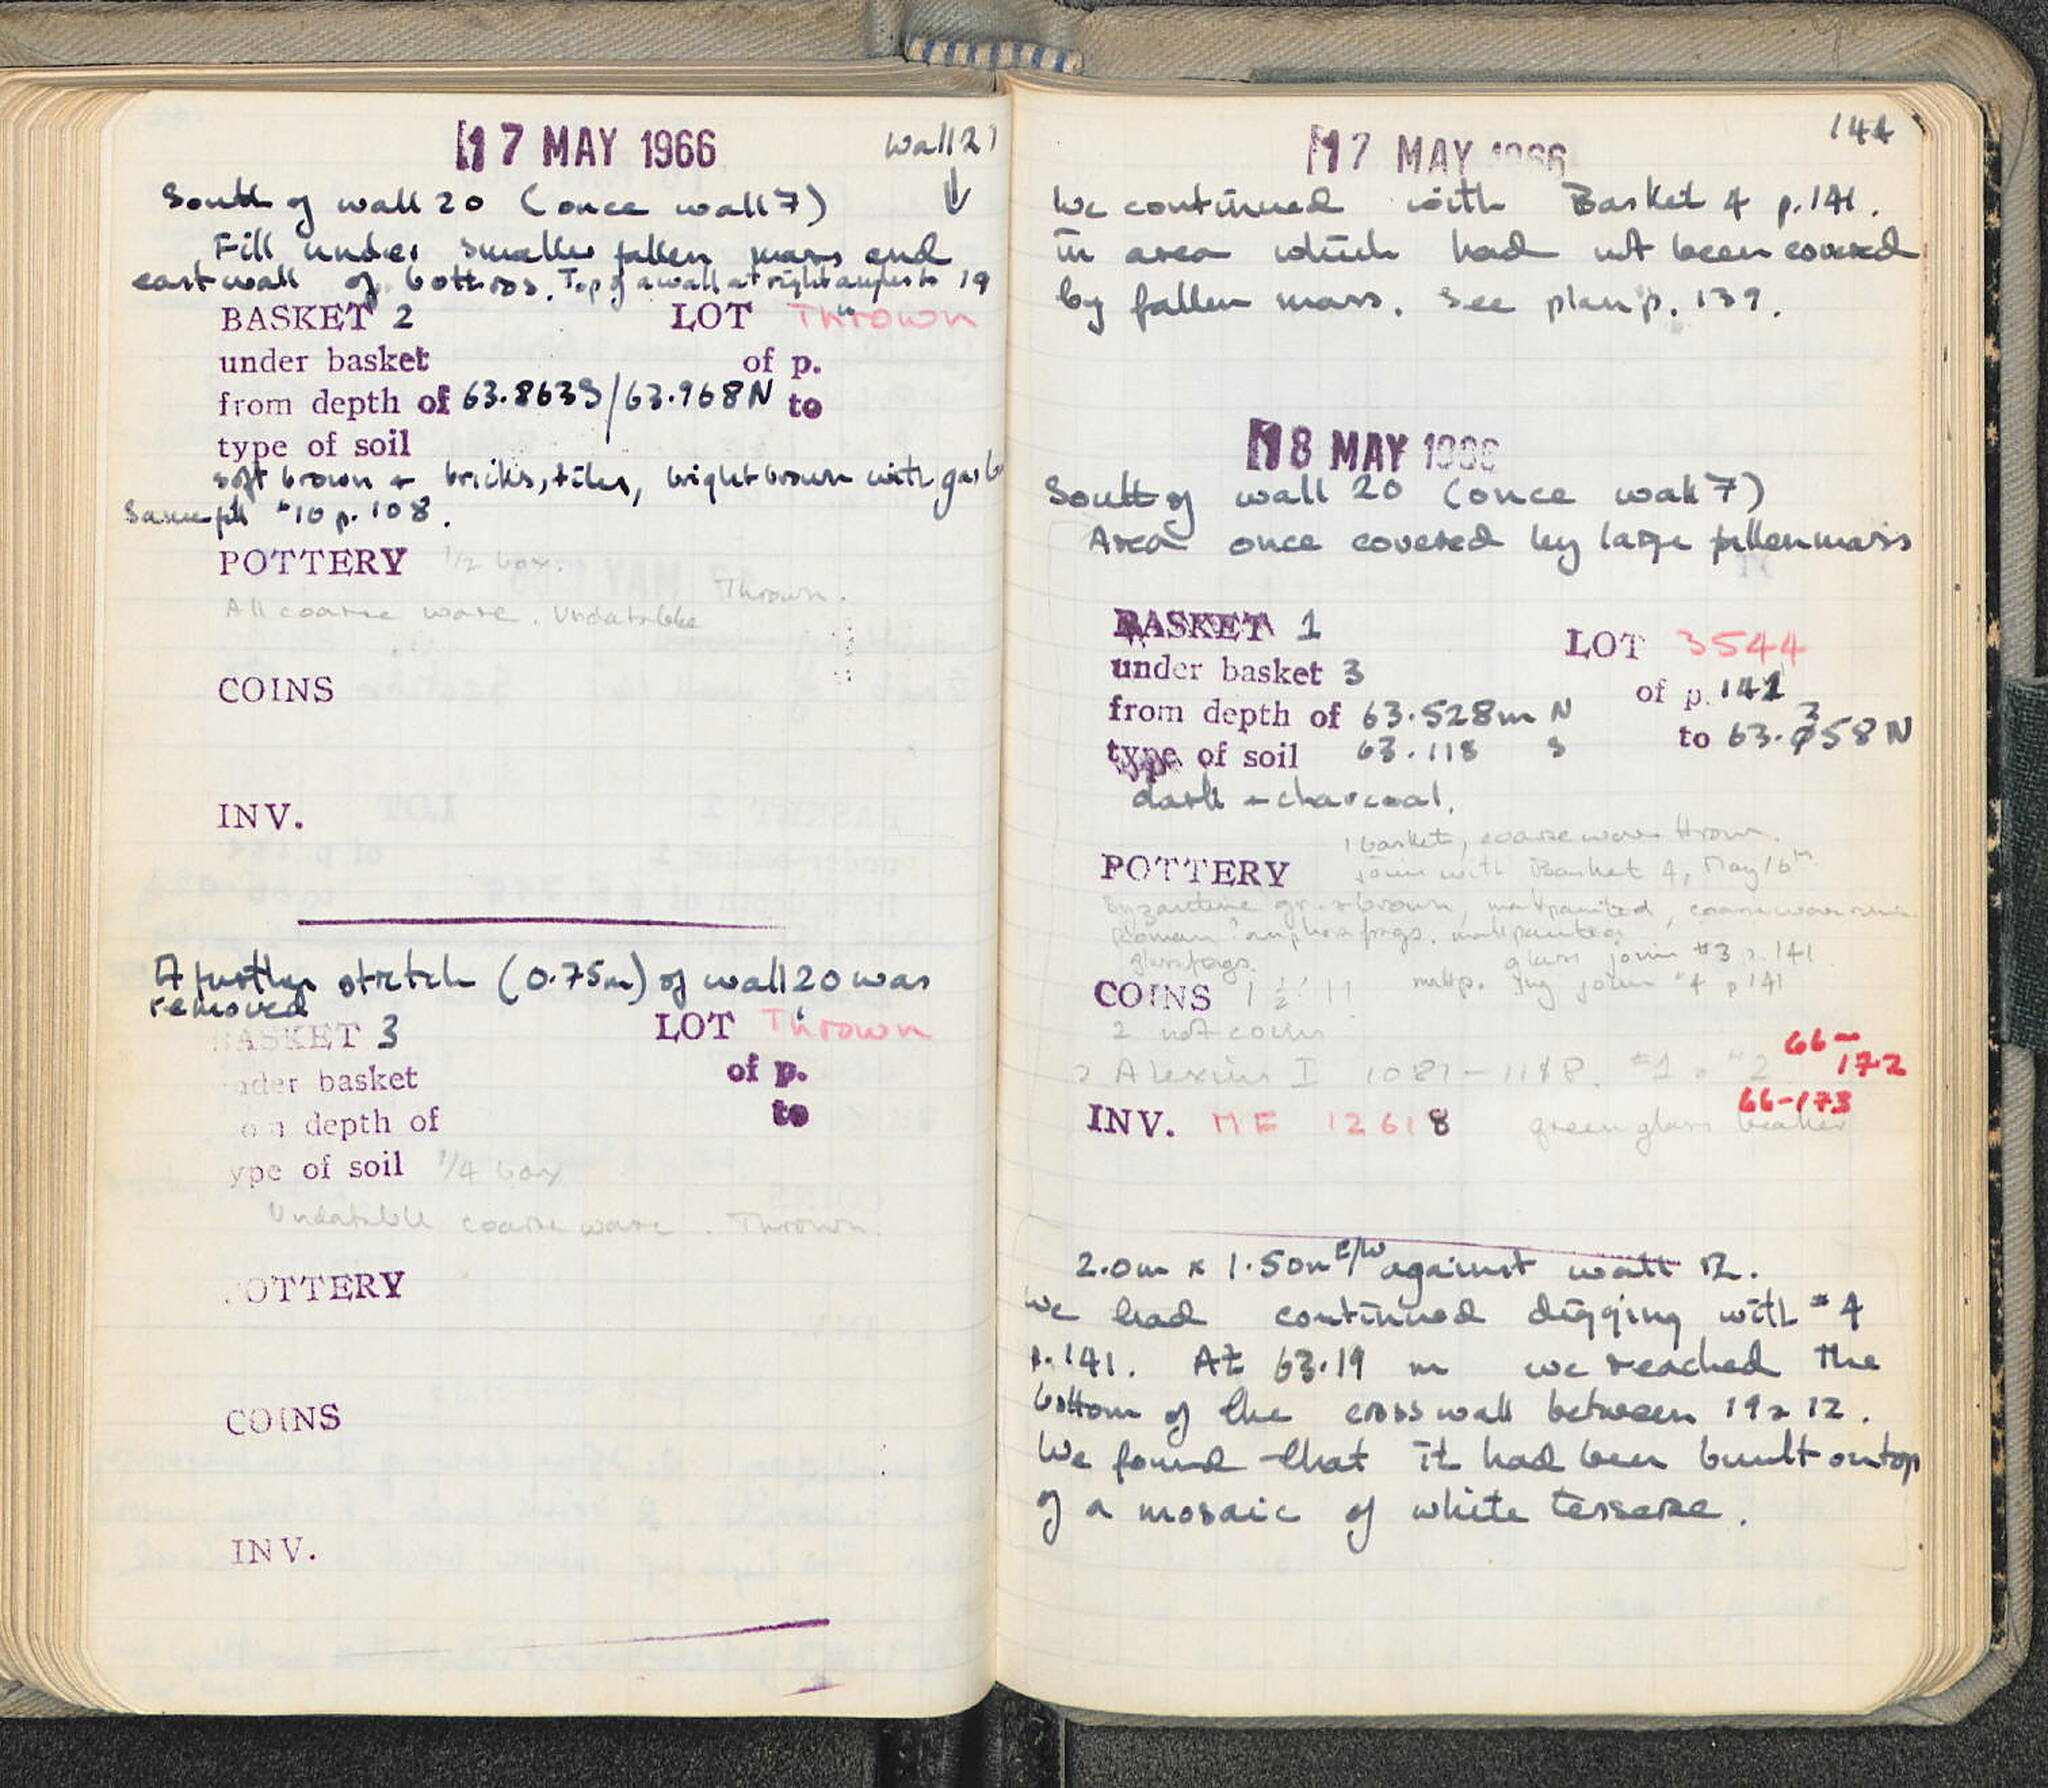 17 MAY 1966
Wall 21
South of wall 20 (once wall 7)
Fill under smaller fallen mass and
east wall of bothros. Top of a wall at right angles to 19
BASKET 2 LOT Thrown
under basket of p.
from depth of 63.863S/63.968N to
type of soil
soft brown + bricks, tiles, bright brown with
Same fill #10 p. 108.
POTTERY 1/2 box.
Thrown.
All coarse ware. Undatable
COINS
INV.
A further stretch (0.75m) of wall 20 was
removed
BASKET 3 LOT Thrown
under basket of p.
from depth of to
type of soil 1/4 box
Undatable coarse ware. Thrown.
POTTERY
COINS
INV.
144
17 MAY 1966
We continued with Basket 4 p. 141.
in area which had not been covered
by fallen mass. See plan p. 139.
18 MAY 1966
South of wall 20 (once wall 7)
Area once covered by large fallen mass
BASKET 1 LOT 3544
under basket 3 of p. 141
from depth of 63.528m N
to 63.358N
type of soil 63.118 S
dark + charcoal.
1 basket, coarse ware thrown.
POTTERY join with Basket 4, May 16th
Byzantine gr. + brown, mattpainted, coarse ware
Roman ? amphora frags. mattpainted
glass frags. glass join #3 p. 141
mattp. jug join #4 p 141
COINS 1 1/2 ! 1 !
2 not coins
2 Alexius I 1081-1118. #1 #2 66-172
66-173
INV. MF 12618 green glass beaker
2.0m x 1.50m E/W against wall 12.
We had continued digging with #4
p. 141. At 63.19 m we reached the
bottom of the cross wall between 19 + 12.
We found that it had been built on top
of a mosaic of white tesserae.